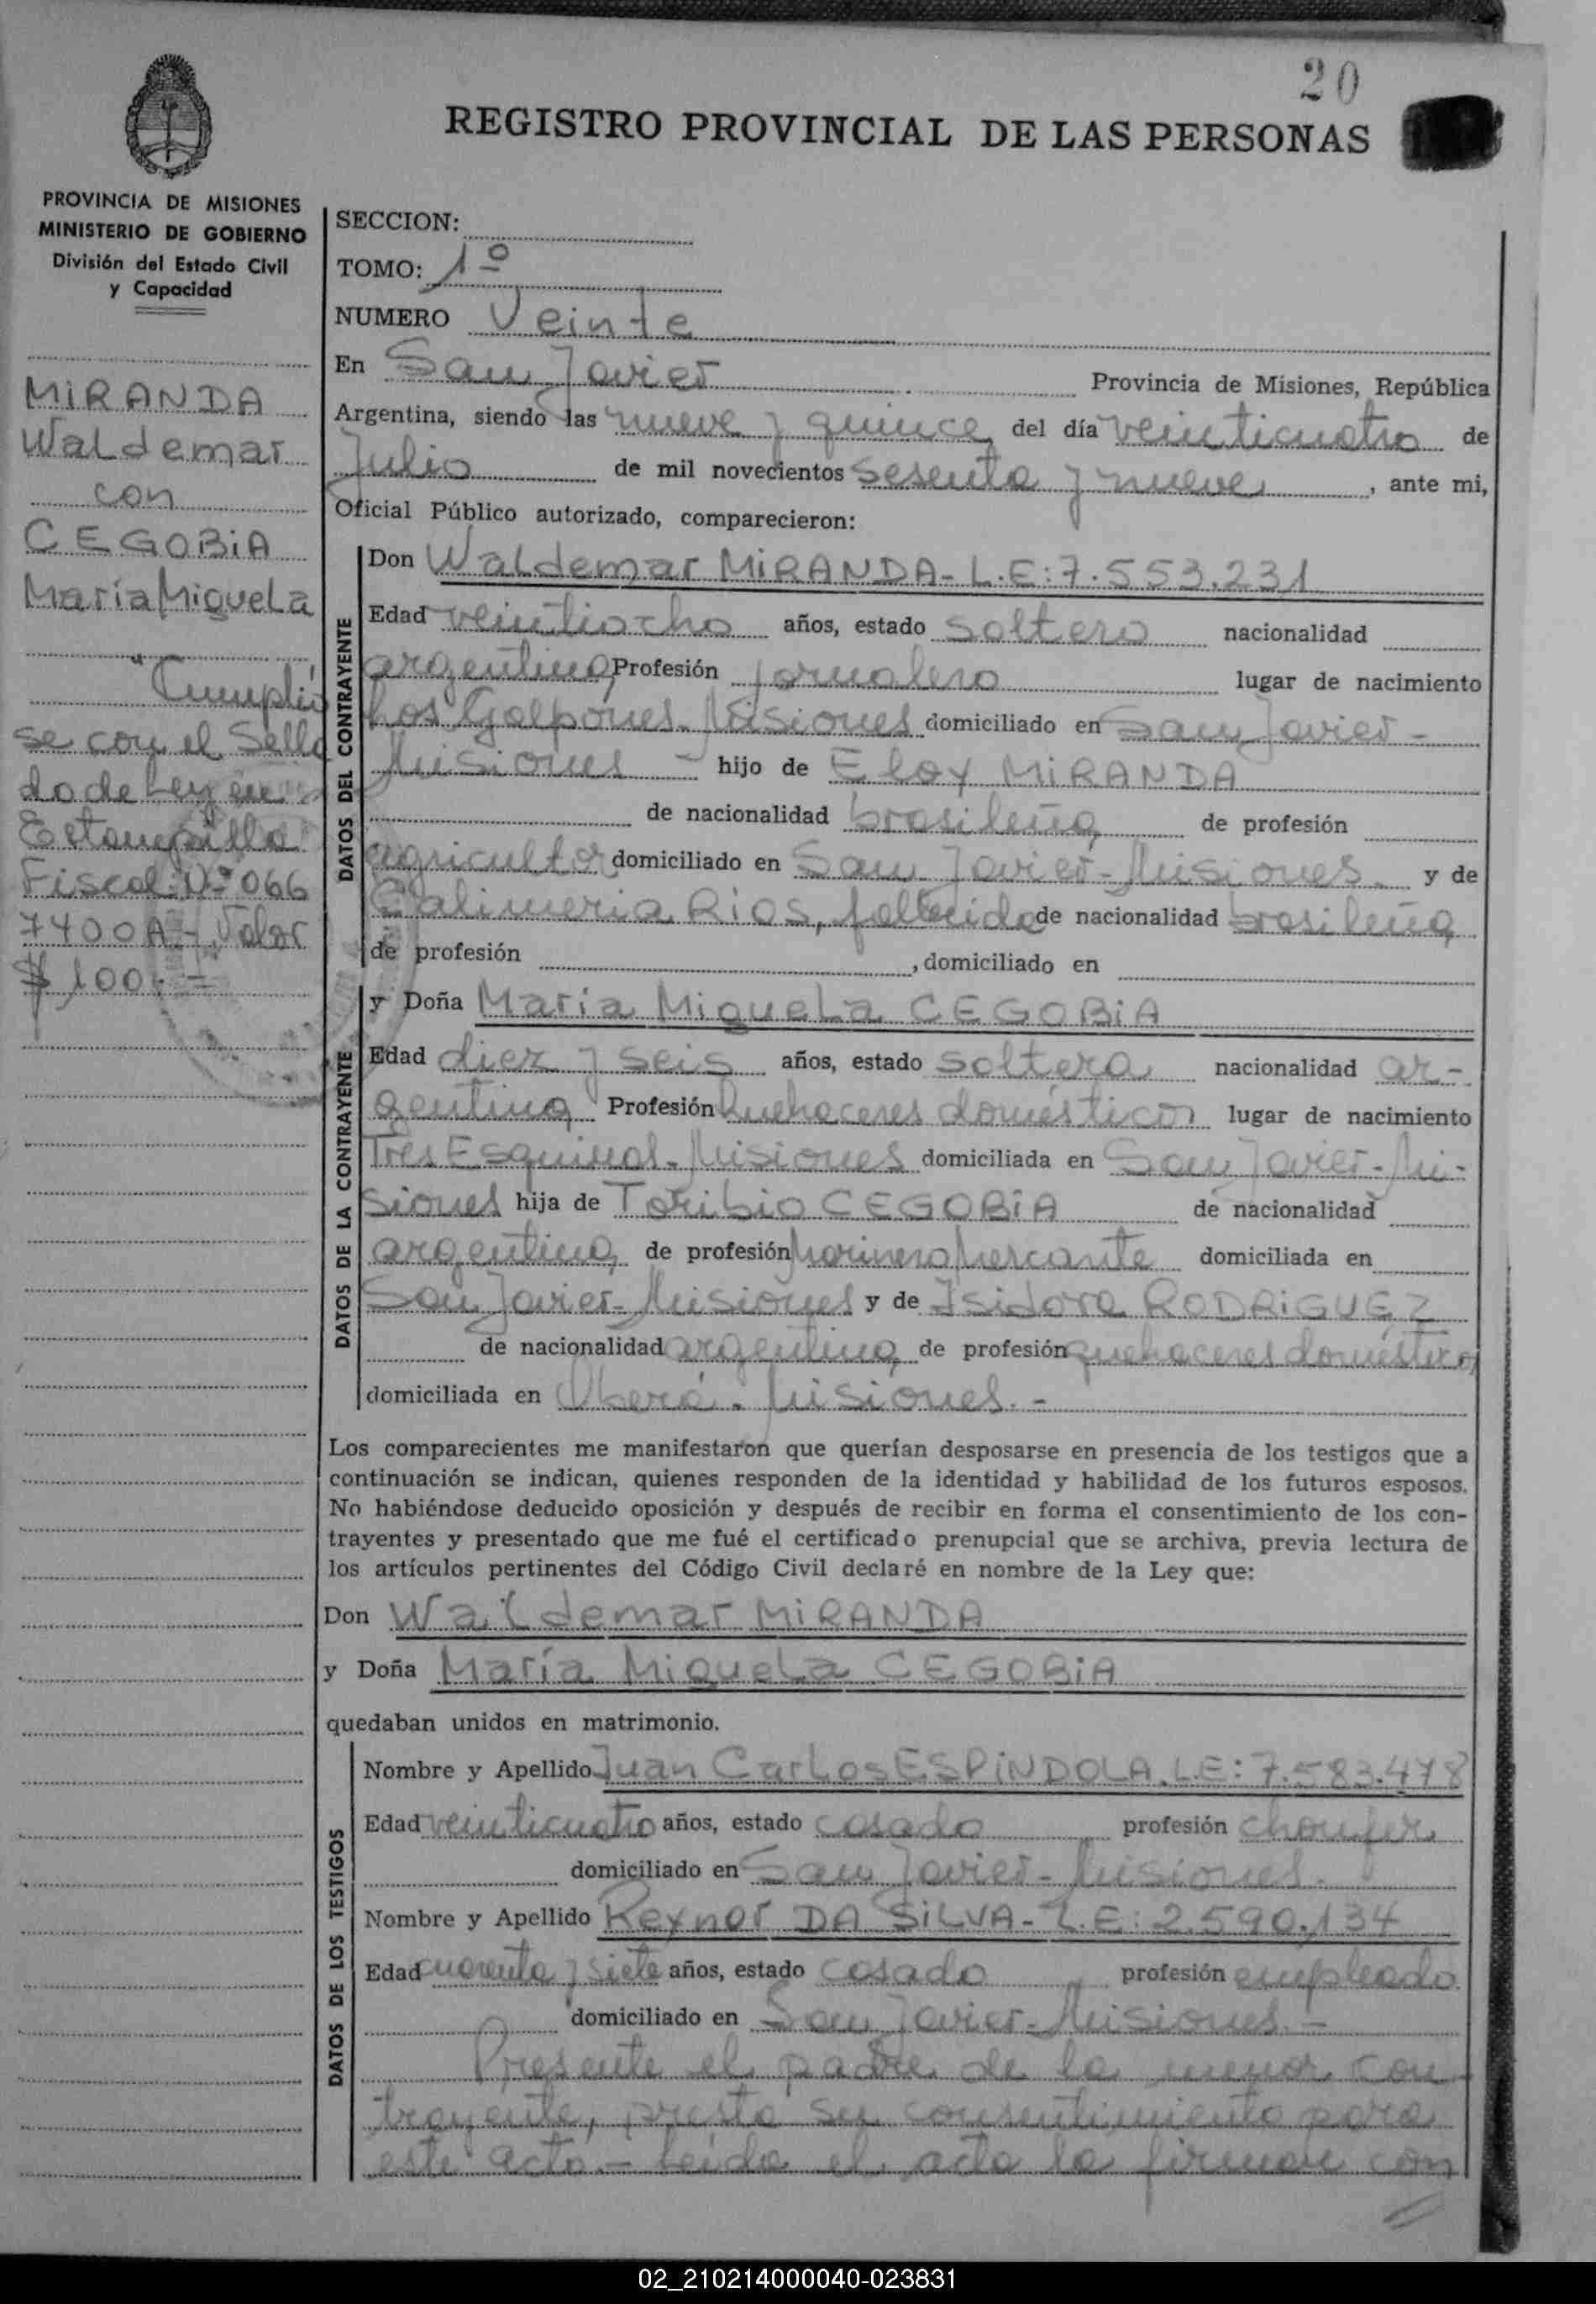 20
REGISTRO PROVINCIAL DE LAS PERSONAS
PROVINCIA DE MISIONES
MINISTERIO DE GOBIERNO
División del Estado Civil
y Capacidad
MIRANDA
Waldemar
con
CEGOBIA
María Miguela
"Cumplió
se con el Sella
do de Ley en
Estampilla
Fiscal Nº 066
7400A-, Valor
$ 100.=
SECCION:
TOMO: 1º
NUMERO Veinte
En San Javier Provincia de Misiones, República
Argentina, siendo las nueve y quince del día veinticuatro de
Julio de mil novecientos sesenta y nueve, ante mi,
Oficial Público autorizado, comparecieron:
DATOS DEL CONTRAYENTE
Don Waldemar MIRANDA- L.E: 7.553.231
Edad veintiocho años, estado soltero nacionalidad
argentina, Profesión jornalero lugar de nacimiento
Los Galpones- Misiones domiciliado en San Javier-
Misiones - hijo de Eloy MIRANDA
de nacionalidad brasileña, de profesión
agricultor domiciliado en San Javier-Misiones y de
RIOS, fallecida de nacionalidad brasileña
de profesión , domiciliado en
DATOS DE LA CONTRAYENTE
y Doña María Miguela CEGOBIA
Edad diez y seis años, estado soltera nacionalidad ar-
gentina Profesión quehaceres domésticos lugar de nacimiento
Tres Esquinas-Misiones domiciliada en San Javier-Mi-
siones hija de Toribio CEGOBIA de nacionalidad
argentina, de profesión Marinero Mercante domiciliada en
San Javier-Misiones y de Isidora RODRIGUEZ
de nacionalidad argentina, de profesión quehaceres domésticos,
domiciliada en Oberá-Misiones.-
Los comparecientes me manifestaron que querían desposarse en presencia de los testigos que a
continuación se indican, quienes responden de la identidad y habilidad de los futuros esposos.
No habiéndose deducido oposición y después de recibir en forma el consentimiento de los con-
trayentes y presentado que me fué el certificado prenupcial que se archiva, previa lectura de
los artículos pertinentes del Código Civil declaré en nombre de la Ley que:
Don Waldemar MIRANDA
y Doña María Miguela CEGOBIA
quedaban unidos en matrimonio.
DATOS DE LOS TESTIGOS
Nombre y Apellido Juan Carlos ESPINDOLA. L.E: 7.583.478
Edad veinticuatro años, estado casado profesión choufer
domiciliado en San Javier-Misiones.
Nombre y Apellido Reynor DA SILVA- L.E: 2.590.134
Edad cuarenta y siete años, estado casado profesión empleado
domiciliado en San Javier-Misiones.-
Presente el padre de la menor con
trayente, presta su consentimiento para
este acto.- Leída el acta la firman con
02_210214000040-023831